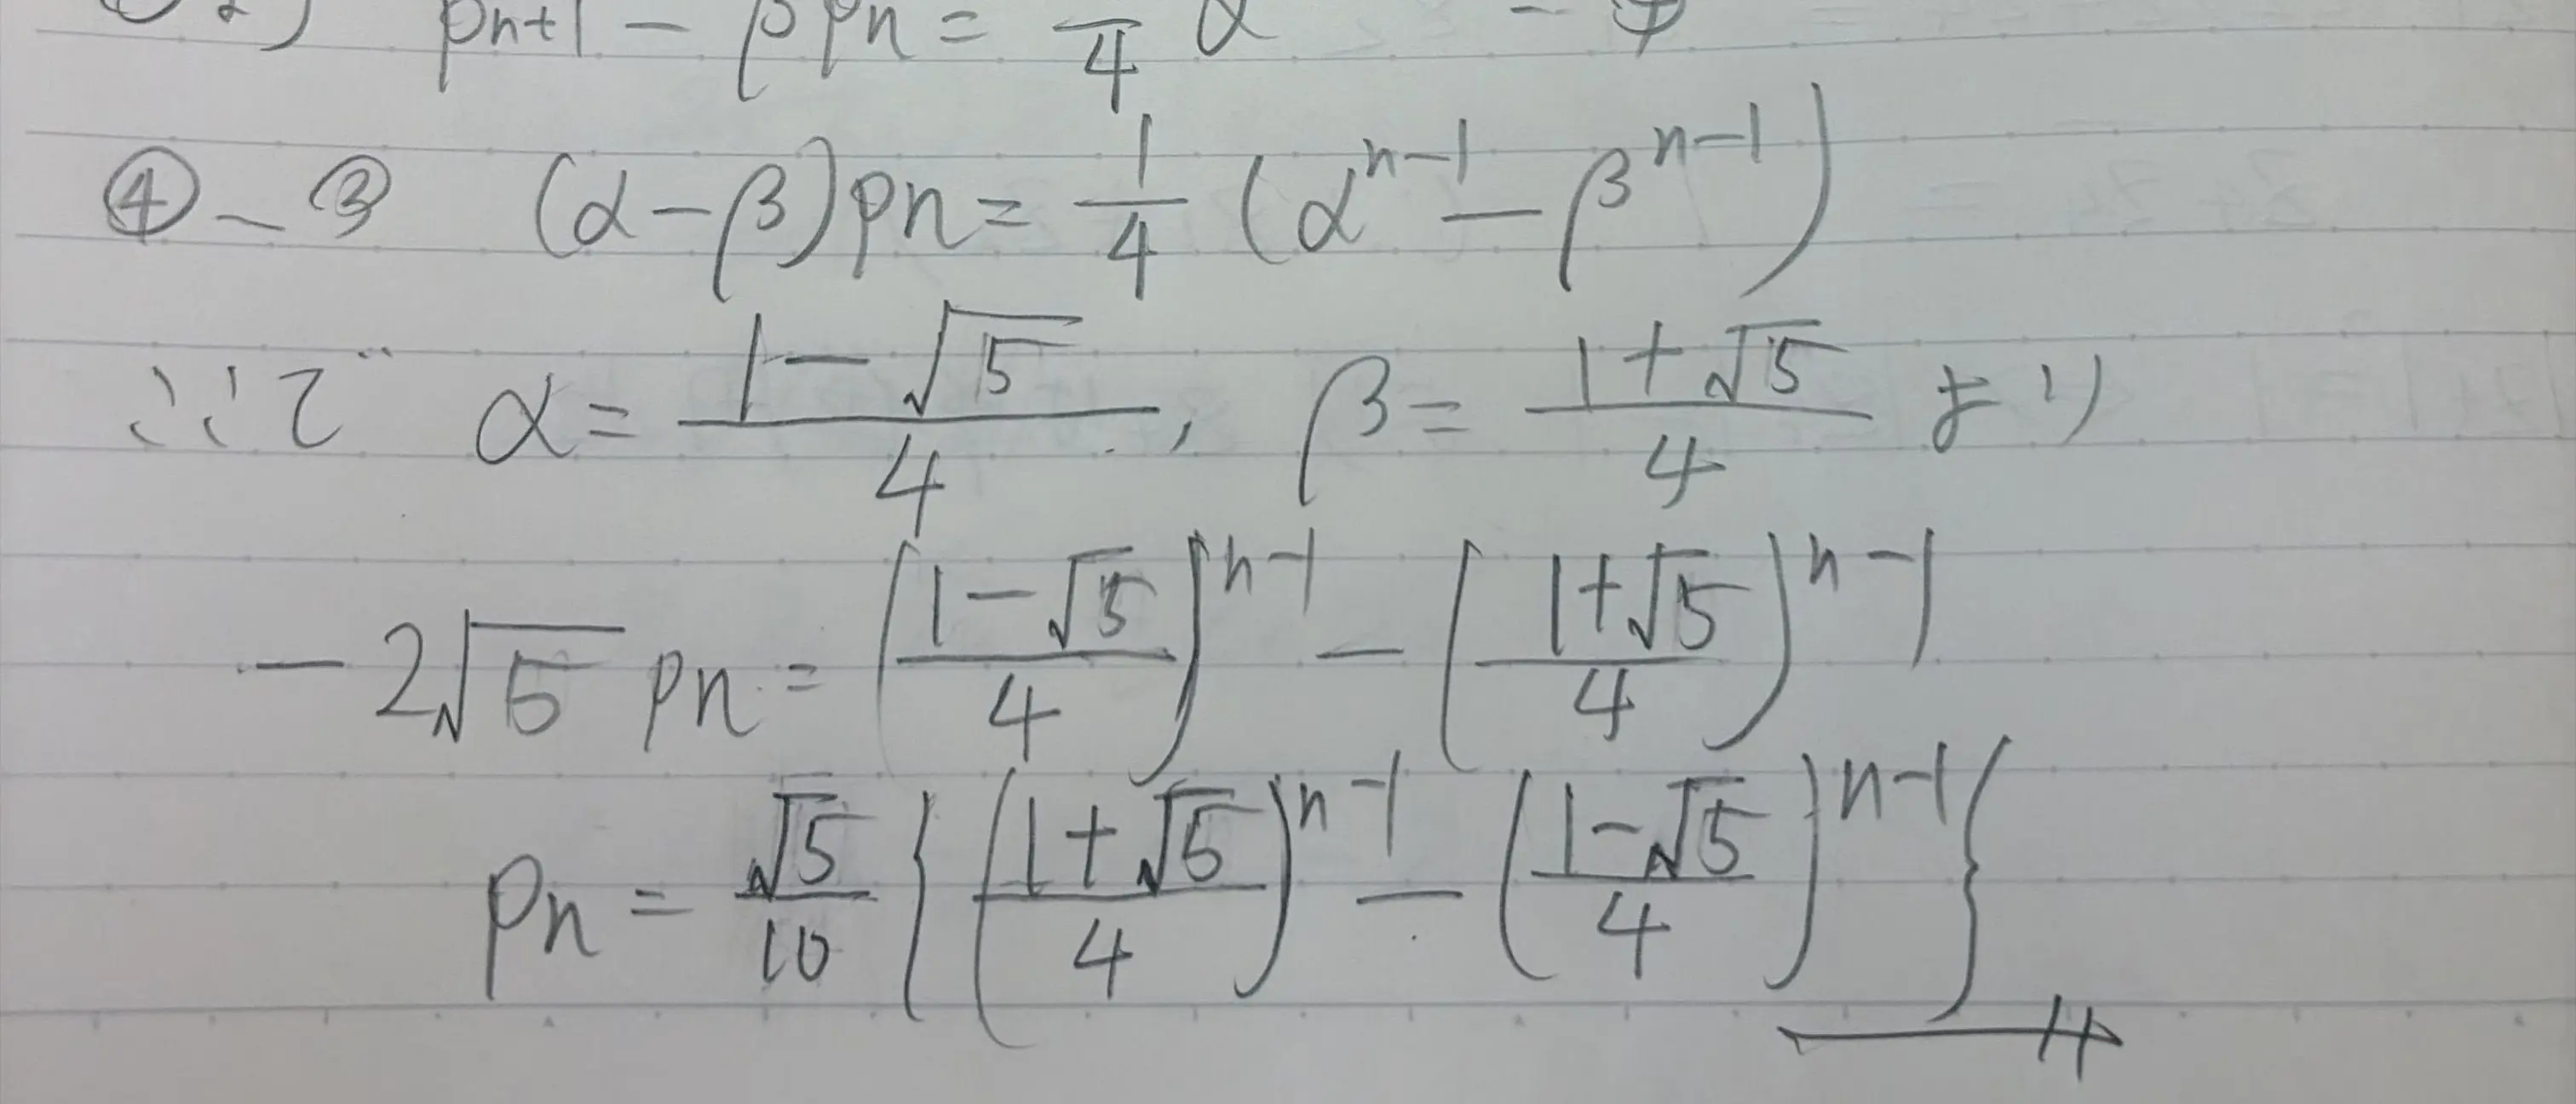 pn+1 − βpn = 1/4 α − ④
④ − ③ (α−β)pn = 1/4 (α^{n−1} − β^{n−1})
ここで α = (1−√5)/4, β = (1+√5)/4 より
−2√5 pn = ((1−√5)/4)^{n−1} − ((1+√5)/4)^{n−1}
pn = √5/10 {((1+√5)/4)^{n−1} − ((1−√5)/4)^{n−1}}